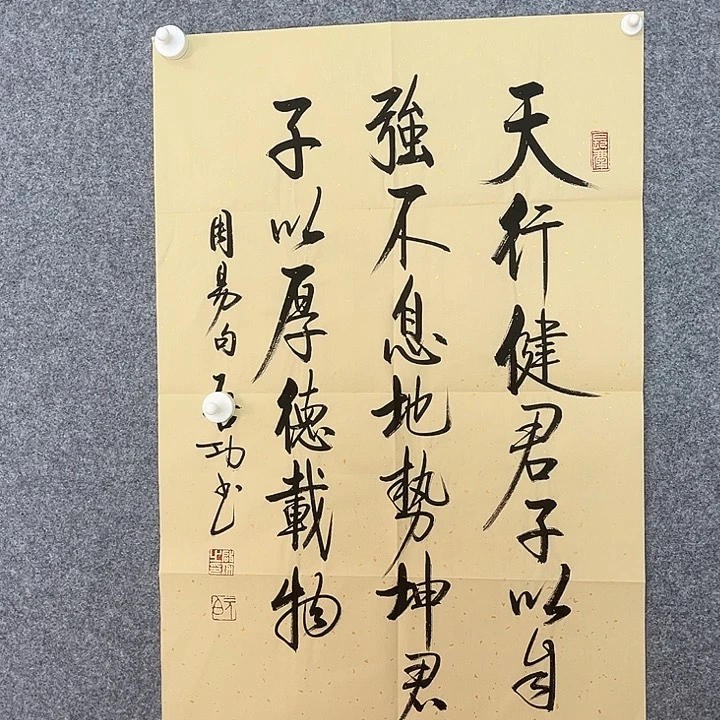 天行健君子以自
強不息地勢坤君
子以厚德載物
周易句启功书